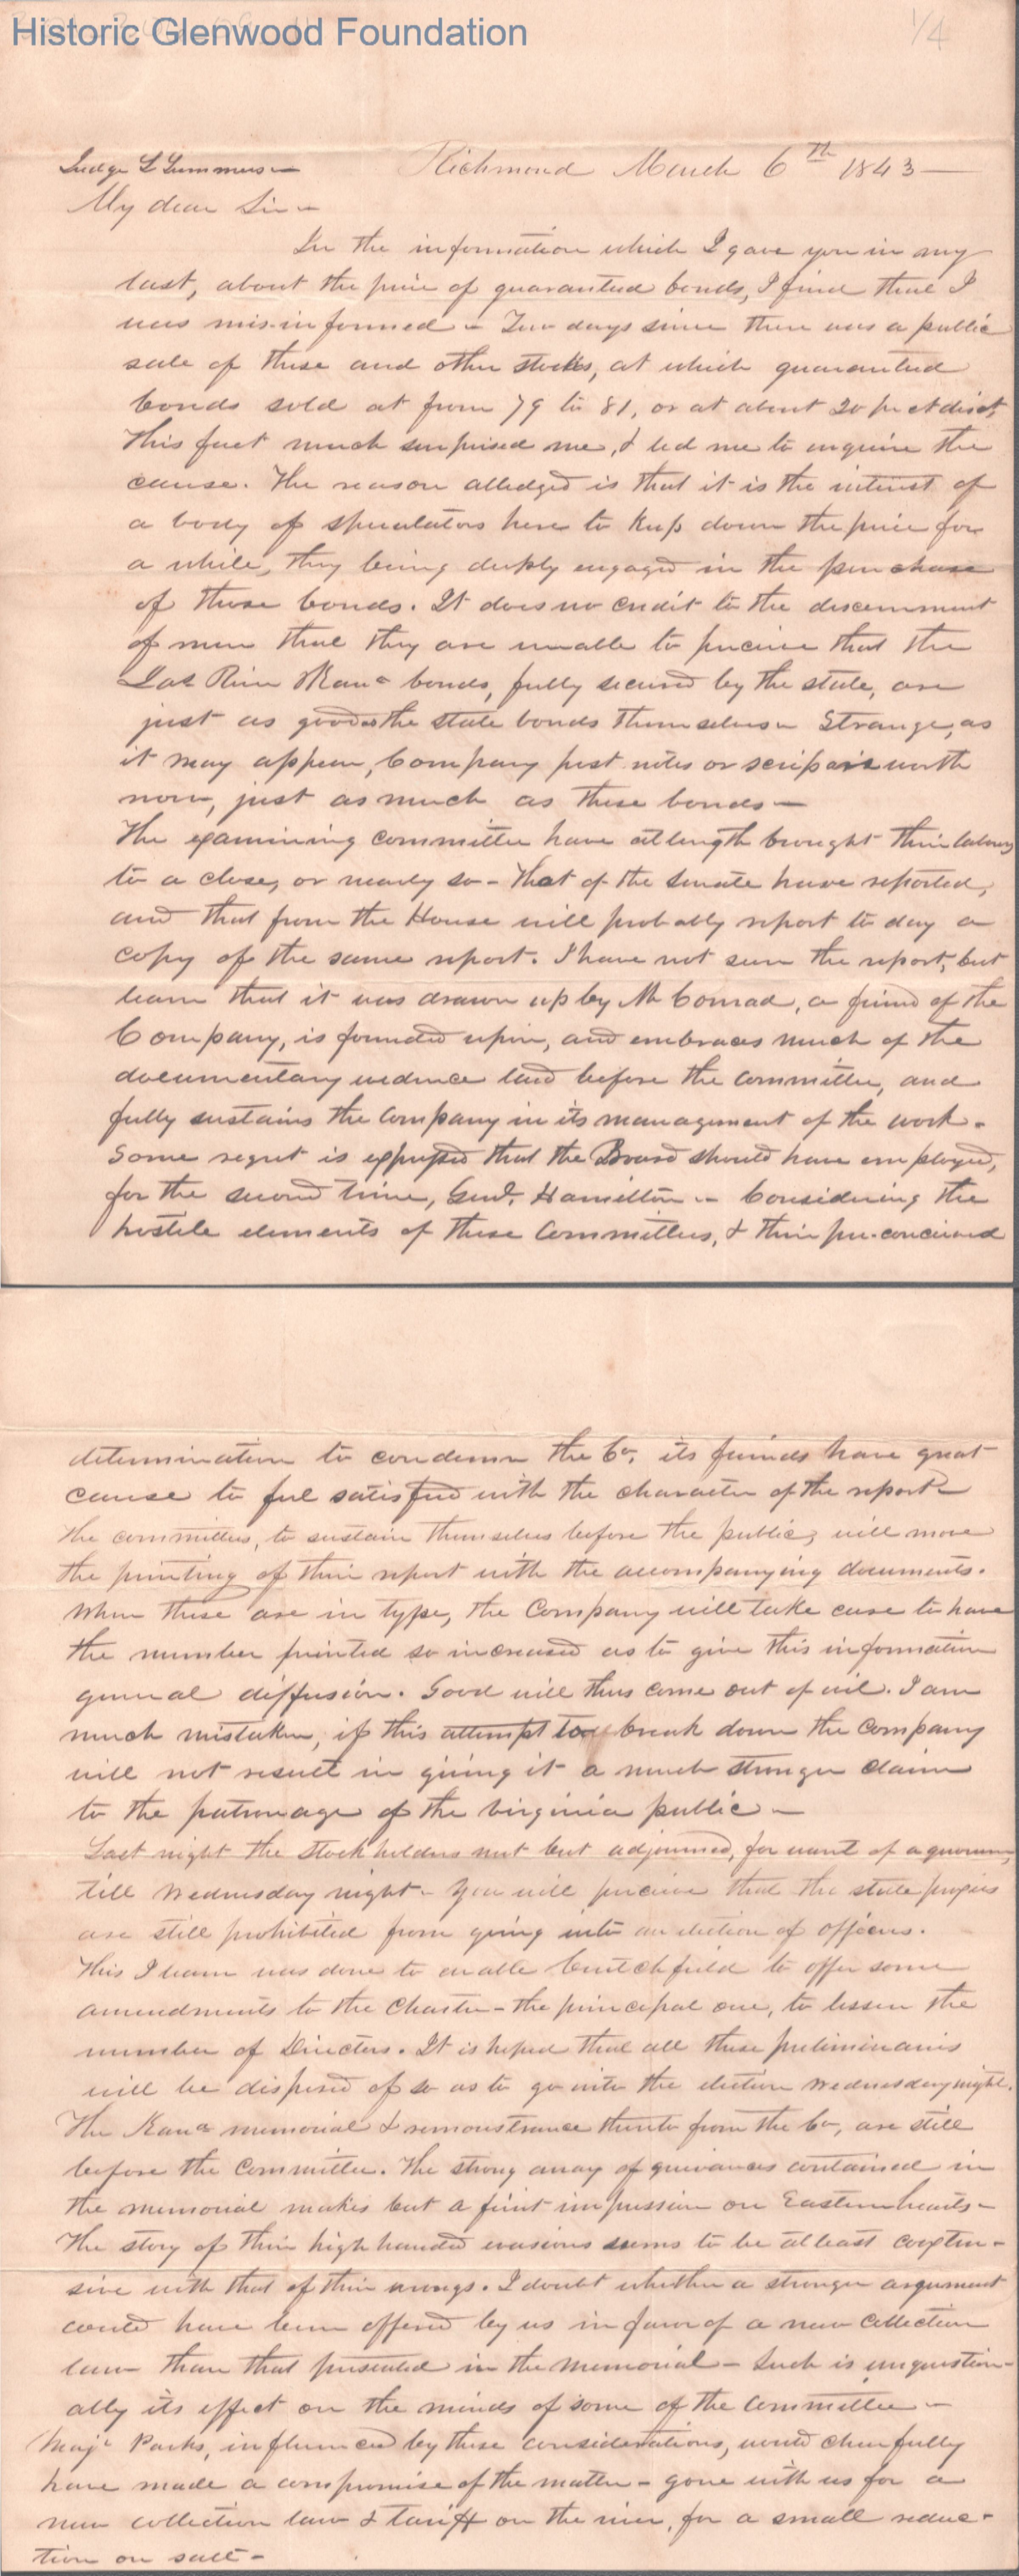 Historic Glenwood Foundation
1/4
Judge L Summers —
Richmond March 6th 1843 —
My dear Sir —
In the information which I gave you in my
last, about the price of guaranteed bonds, I find that I
was mis-informed - Two days since there was a public
sale of these and other stocks, at which guaranteed
bonds sold at from 79 to 81, or at about 20 pr ct disct,
This fact much surprised me, & led me to enquire the
cause. The reason alledged is that it is the interest of
a body of speculators here to keep down the price for
a while, they being deeply engaged in the purchase
of those bonds. It does no credit to the discernment
of men that they are unable to perceive that the
Jas River & Kana bonds, fully secured by the state, are
just as good as the state bonds themselves - Strange, as
it may appear, Company post notes or scrip are worth
now, just as much as these bonds —
The examining committee have at length brought their labours
to a close, or nearly so - That of the senate have reported,
and that from the House will probably report to day a
copy of the same report. I have not seen the report, but
learn that it was drawn up by Mr Conrad, a friend of the
Company, is founded upon, and embraces much of the
documentary evidence laid before the Committee, and
fully sustains the Company in its management of the work -
Some regret is expressed that the Board should have employed,
for the second time, Genl. Hamilton - Considering the
hostile elements of these Committees, & their pre-conceived
determination to condemn the Co, its friends have great
cause to feel satisfied with the character of the report —
The committees, to sustain themselves before the public, will move
the printing of their report with the accompanying documents.
When these are in type, the Company will take care to have
the number printed so increased as to give this information
general diffusion. Good will thus come out of evil. I am
much mistaken, if this attempt to break down the Company
will not result in giving it a much stronger claim
to the patronage of the Virginia public —
Last night the Stockholders met but adjourned, for want of a quorum,
till Wednesday night - You will perceive that the state proxies
are still prohibited from going into an election of officers.
This I learn was done to enable Crutchfield to offer some
amendments to the Charter - the principal one, to lessen the
number of Directors. It is hoped that all these preliminaries
will be disposed of so as to go into the election Wednesday night.
The Kana memorial & remonstrance thereto from the Co, are still
before the Committee. The strong array of grievances contained in
the memorial makes but a faint impression on Eastern hearts -
The story of their high handed evasions seems to be at least coexten-
sive with that of their wrongs. I doubt whether a stronger argument
could have been offered by us in favor of a new Collection
law than that presented in the memorial - Such is unquestion-
ably its effect on the minds of some of the Committee —
Majr Parks, influenced by these considerations, would cheerfully
have made a compromise of the matter - gone with us for a
new collection law & tariff on the river, for a small reduc-
tion on salt -